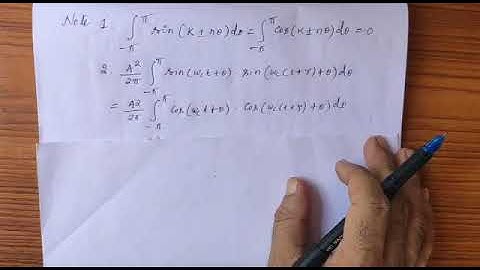 Note 1. ∫_{-π}^{π} sin(k±nθ)dθ = ∫_{-π}^{π} cos(k±nθ)dθ = 0
2. A²/2π ∫_{-π}^{π} sin(ω_c t+θ) sin(ω_c(t+τ)+θ)dθ
= A²/2π ∫_{-π}^{π} cos(ω_c t+θ) · cos(ω_c(t+τ)+θ)dθ